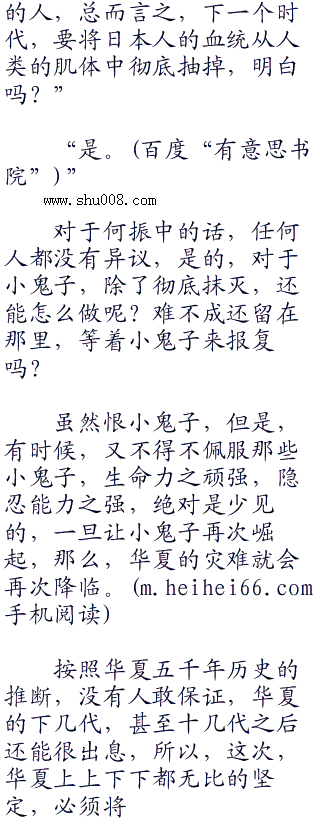 的人，总而言之，下一个时
代，要将日本人的血统从人
类的肌体中彻底抽掉，明白
吗？”
“是。(百度“有意思书
院”)”
www.shu008.com
对于何振中的话，任何
人都没有异议，是的，对于
小鬼子，除了彻底抹灭，还
能怎么做呢？难不成还留在
那里，等着小鬼子来报复
吗？
虽然恨小鬼子，但是，
有时候，又不得不佩服那些
小鬼子，生命力之顽强，隐
忍能力之强，绝对是少见
的，一旦让小鬼子再次崛
起，那么，华夏的灾难就会
再次降临。(m.heihei66.com
手机阅读)
按照华夏五千年历史的
推断，没有人敢保证，华夏
的下几代，甚至十几代之后
还能很出息，所以，这次，
华夏上上下下都无比的坚
定，必须将